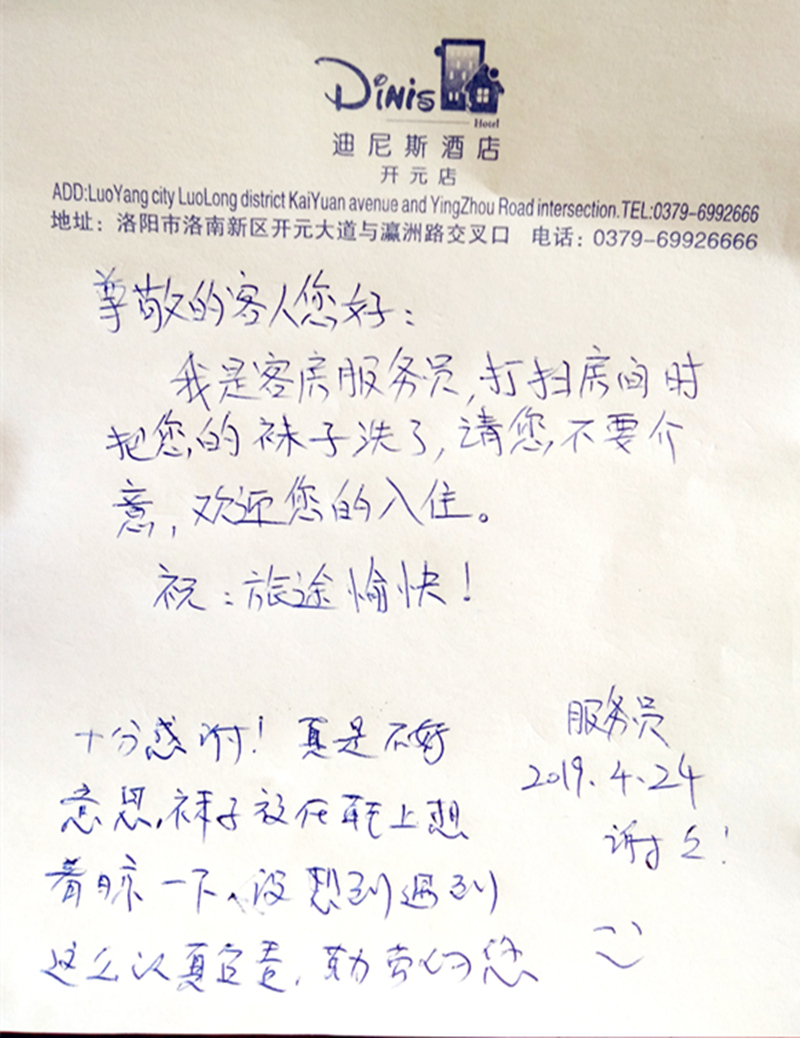 Dinis
Hotel
迪尼斯酒店
开元店
ADD:LuoYang city LuoLong district KaiYuan avenue and YingZhou Road intersection.TEL:0379-6992666
地址：洛阳市洛南新区开元大道与瀛洲路交叉口 电话：0379-69926666
尊敬的客人您好：
我是客房服务员,打扫房间时
把您的袜子洗了,请您不要介
意,欢迎您的入住。
祝：旅途愉快！
服务员
2019.4.24
十分感谢！真是不好
意思,袜子放在鞋上想
着晾一下、没想到遇到
这么认真负责,勤劳的您
谢谢！